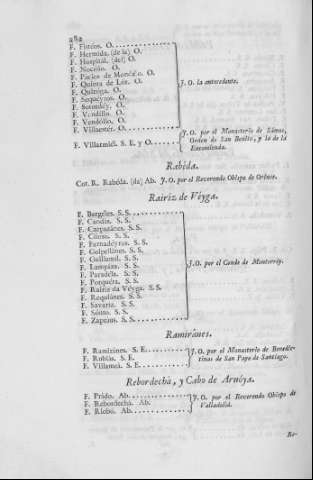 282
F. Firóns. O.
F. Hermida. (de la) O.
F. Hospital. (del) O.
F. Nocedo. O.
F. Pacios de Mondélo. O.
F. Quinta de Lór. O.
F. Quiróga. O.
F. Sequéyros. O.
F. O.
F. Vendillo. O.
F. Vendóllo. O.
F. Villastér. O.
J. O. la antecedente.
F. Villarmiél. S. E. y O.
J. O. por el Monasterio de Sámos,
Orden de San Benito, y la de la
Encomienda.
Rabéda.
Cot. R. Rabéda. (da) Ab. J. O. por el Reverendo Obispo de Orense.
Rairiz de Véyga.
F. Bargeles. S. S.
F. Candás. S. S.
F. Carpazánes. S. S.
F. S. S.
F. Fernadéyras. S. S.
F. Golpellánes. S. S.
F. Guillamil. S. S.
F. Lampáza. S. S.
F. Paradéla. S. S.
F. Porquéra. S. S.
F. Rairiz da Véyga. S. S.
F. Requiánes. S. S.
F. Savariz. S. S.
F. Sóuto. S. S.
F. Zapeáus. S. S.
J. O. por el Conde de Monterréy.
Ramiránes.
F. Ramiránes. S. E.
F. Rubiás. S. E.
F. Villameá. S. E.
J. O. por el Monasterio de Benedic-
tinas de San Payo de Santiago.
Rebordechá, y Cabo de Arnóya.
F. Prádo. Ab.
F. Rebordechá. Ab.
F. Riobó. Ab.
J. O. por el Reverendo Obispo de
Valladolid.
Re-